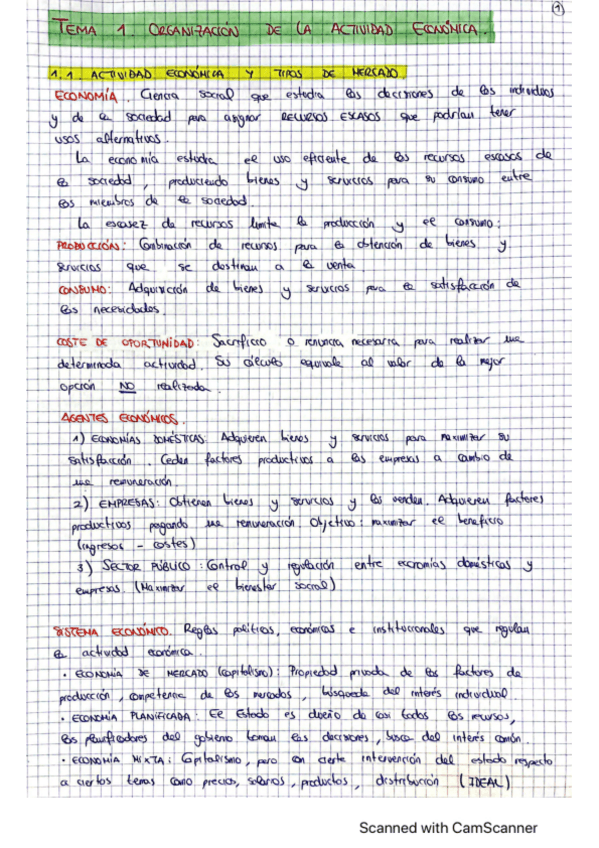 1
TEMA 1. ORGANIZACIÓN DE LA ACTIVIDAD ECONÓMICA.
1.1. ACTIVIDAD ECONÓMICA Y TIPOS DE MERCADO.
ECONOMÍA. Ciencia social que estudia las decisiones de los individuos
y de la sociedad para asignar RECURSOS ESCASOS que podrían tener
usos alternativos.
La economía estudia el uso eficiente de los recursos escasos de
la sociedad, produciendo bienes y servicios para su consumo entre
los miembros de la sociedad.
La escasez de recursos limita la producción y el consumo:
PRODUCCIÓN: Combinación de recursos para la obtención de bienes y
servicios que se destinan a la venta.
CONSUMO: Adquisición de bienes y servicios para la satisfacción de
las necesidades.
COSTE DE OPORTUNIDAD: Sacrificio o renuncia necesaria para realizar una
determinada actividad. Su cálculo equivale al valor de la mejor
opción NO realizada.
AGENTES ECONÓMICOS.
1) ECONOMÍAS DOMÉSTICAS: Adquieren bienes y servicios para maximizar su
satisfacción. Ceden factores productivos a las empresas a cambio de
una remuneración.
2) EMPRESAS: Obtienen bienes y servicios y los venden. Adquieren factores
productivos pagando una remuneración. Objetivo: maximizar el beneficio
(ingresos - costes)
3) SECTOR PÚBLICO: Control y regulación entre economías domésticas y
empresas. (Maximizar el bienestar social)
SISTEMA ECONÓMICO. Reglas políticas, económicas e institucionales que regulan
la actividad económica.
· ECONOMÍA DE MERCADO (capitalismo): Propiedad privada de los factores de
producción, competencia de los mercados, búsqueda del interés individual.
· ECONOMÍA PLANIFICADA: El Estado es dueño de casi todos los recursos,
los planificadores del gobierno toman las decisiones, busca del interés común.
· ECONOMÍA MIXTA: Capitalismo, pero con cierta intervención del estado respecto
a ciertos temas como precios, salarios, productos, distribución (IDEAL)
Scanned with CamScanner